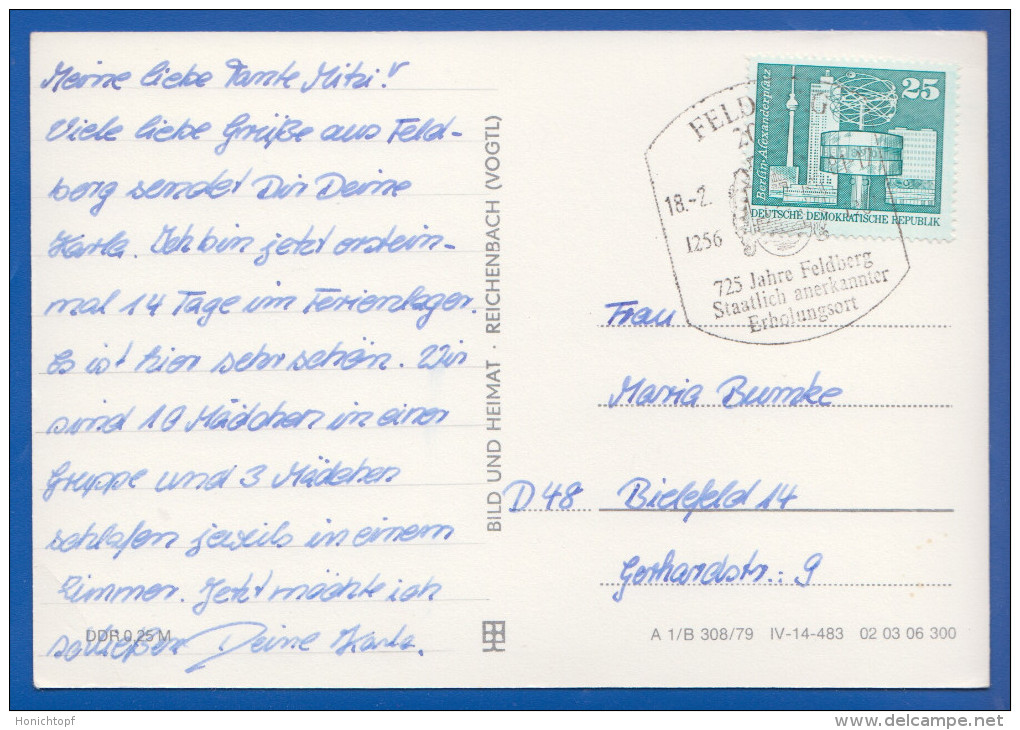 Meine liebe Tante Mitzi!
Viele liebe Grüße aus Feld-
berg sendet Dir Deine
Karla. Ich bin jetzt erstein-
mal 14 Tage im Ferienlager.
Es ist hier sehr schön. Wir
sind 10 Mädchen in einer
Gruppe und 3 Mädchen
schlafen jeweils in einem
Zimmer. Jetzt möchte ich
schließen Deine Karla.
DDR 0,25 M
BILD UND HEIMAT · REICHENBACH (VOGTL)
25
Berlin-Alexanderplatz
DEUTSCHE DEMOKRATISCHE REPUBLIK
FELD
18.-2.
1256
725 Jahre Feldberg
Staatlich anerkannter
Erholungsort
Frau
Maria Bumke
D 48 Bielefeld 14
Gerhardstr.: 9
A 1/B 308/79 IV-14-483 02 03 06 300
Honichtopf
delcampe.net